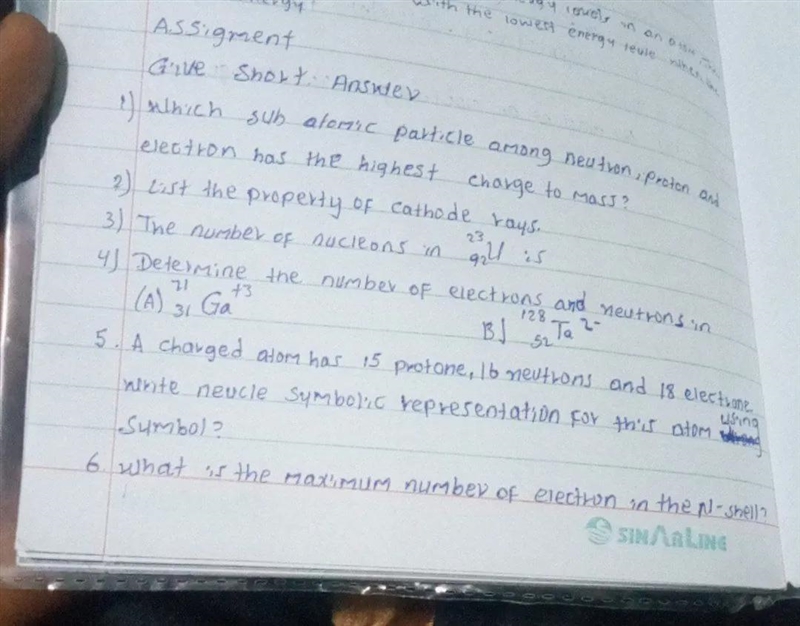 with the lowest energy
Assigment
Give Short Answer
1) Which sub atomic particle among neutron, proton and
electron has the highest charge to mass?
2) List the property of cathode rays.
3) The number of nucleons in 23 92 U is
4) Determine the number of electrons and neutrons in
(A) 71 31 Ga +3 B) 128 52 Ta 2-
5. A charged atom has 15 protone, 16 neutrons and 18 electrone
write neucle symbolic representation for this atom using
Symbol?
6 What is the maximum number of electron in the N-shell?
SINARLING